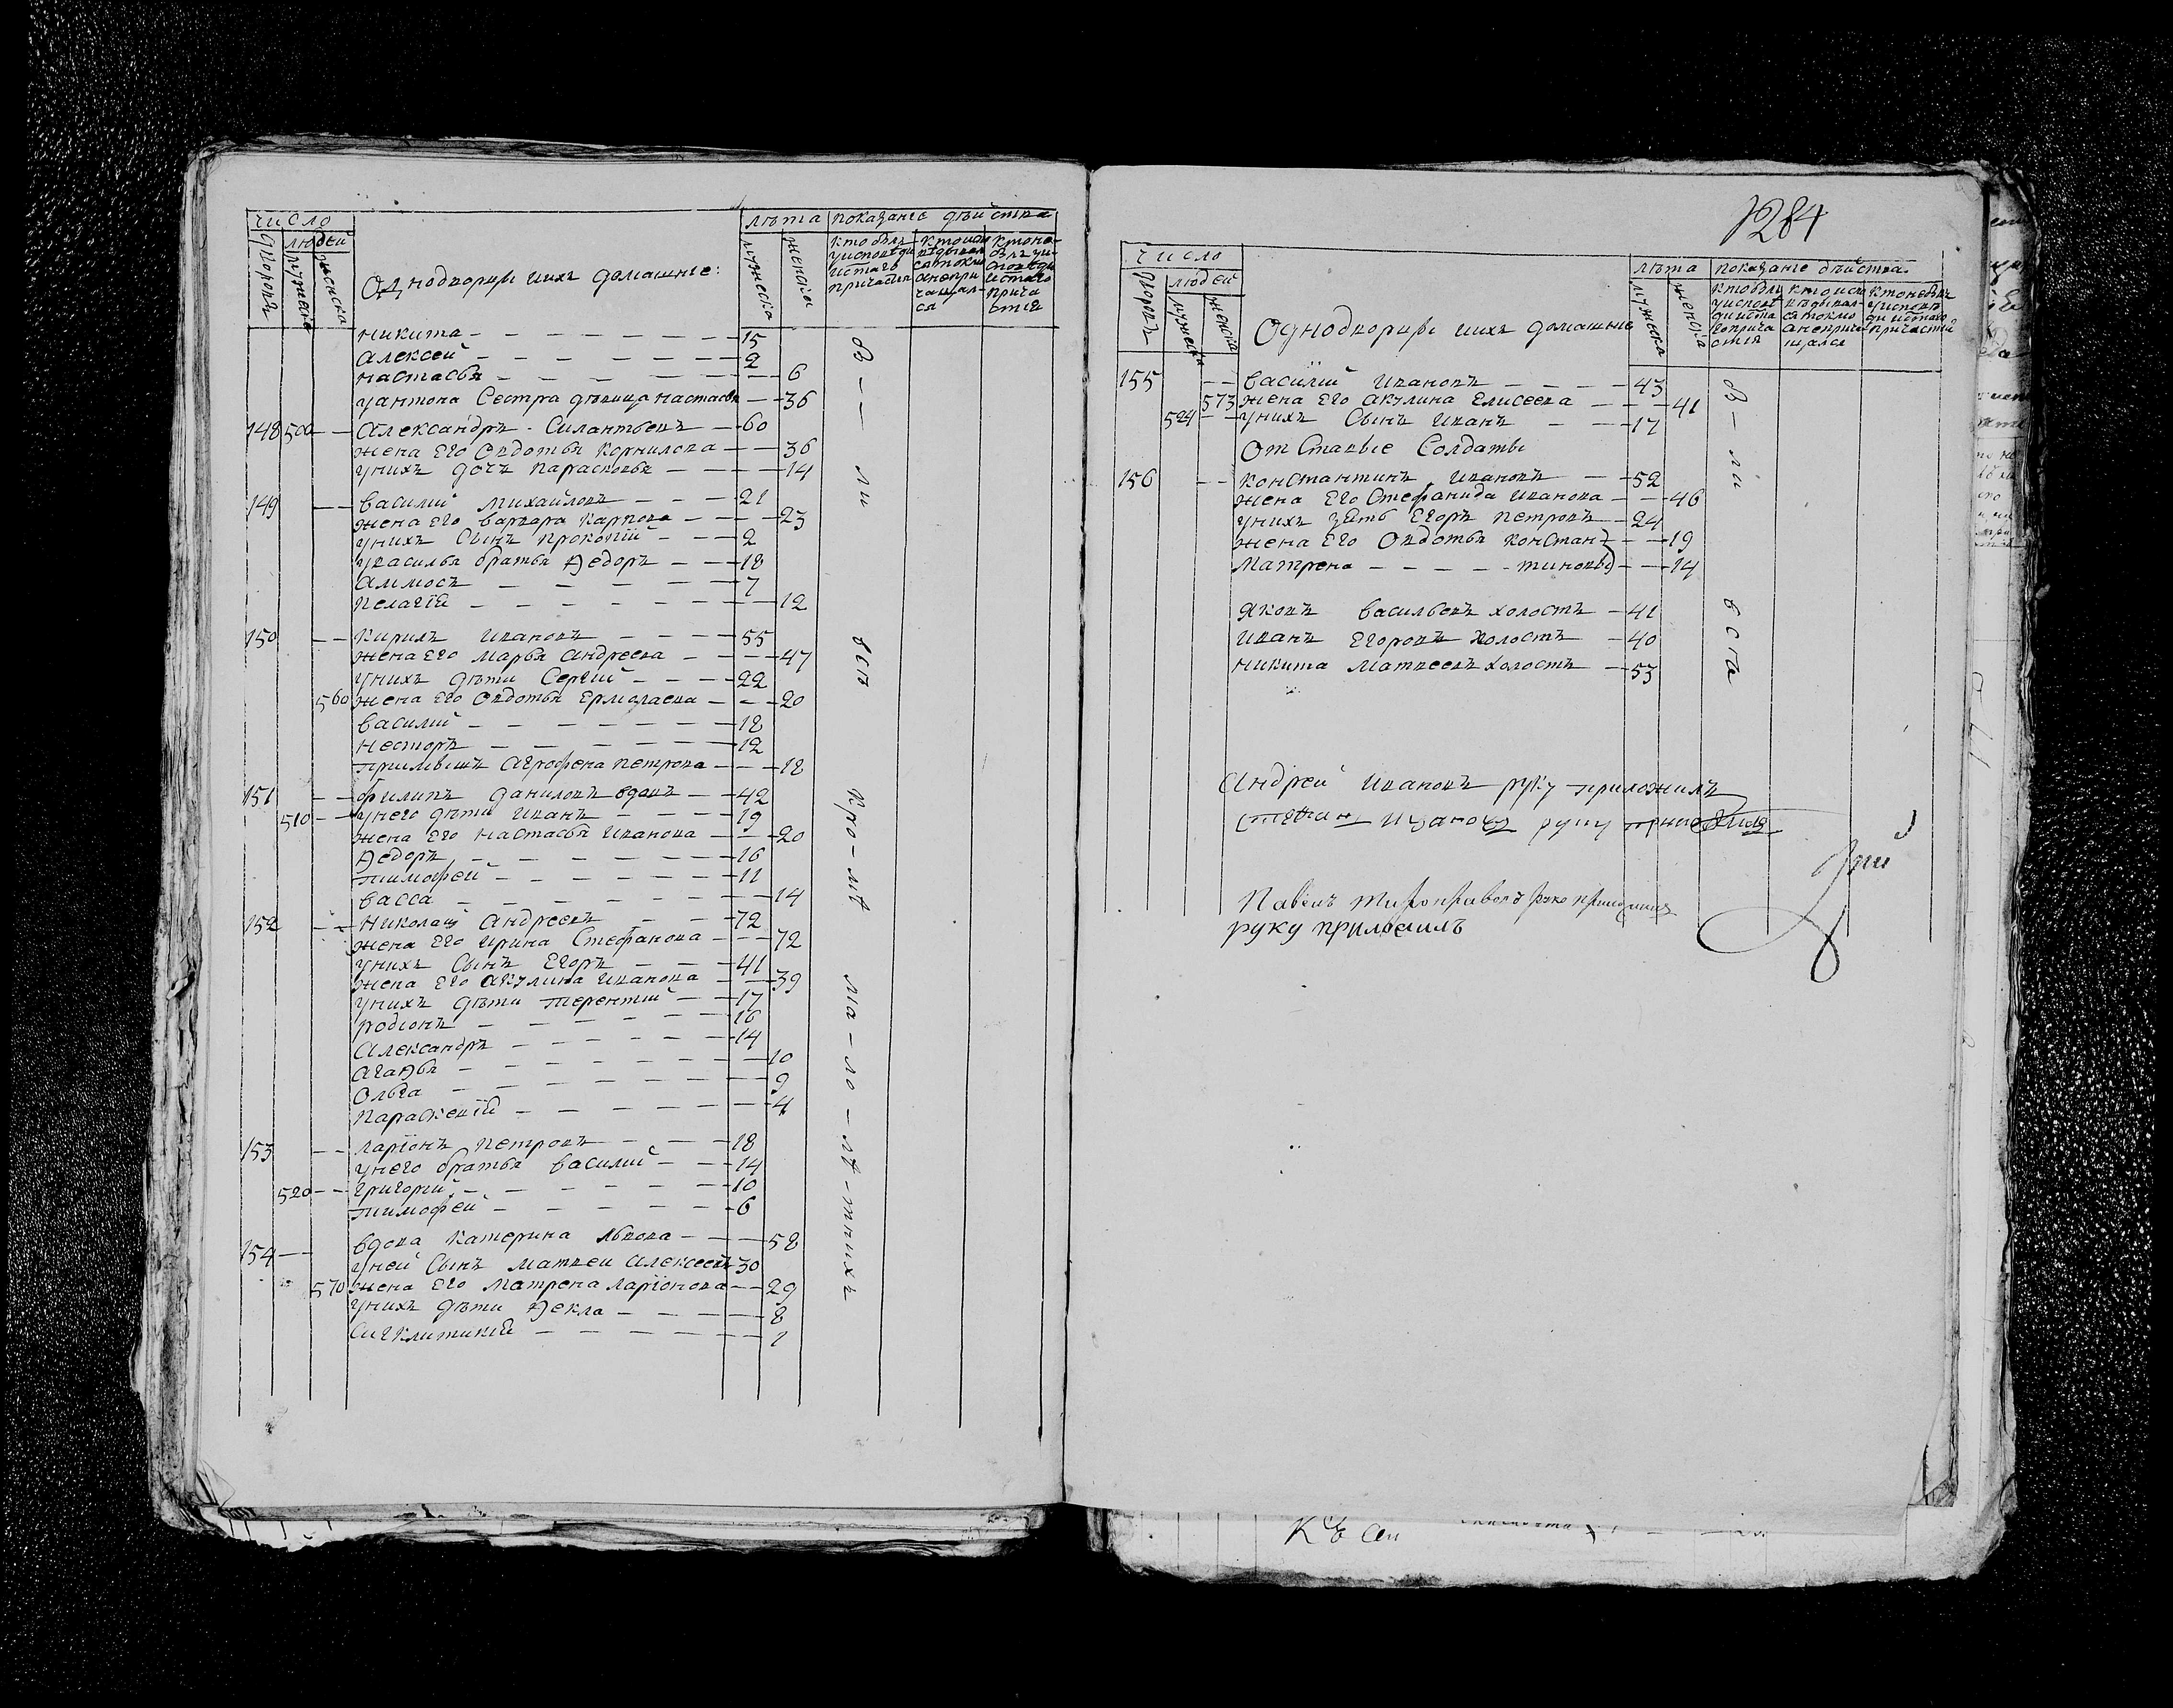 число
дворовъ
людей
мужеска
женска
Однодворцы и ихъ домашние:
лѣта
мужеска
женска
показание действа
кто былъ у исповеди и стаго причастия
кто исповѣдывался токмо а не причащался
кто не былъ у исповѣди и стаго причастия
никита 15
Алексей 2
настасья 6
у антона Сестра девица настасья 36
148 500 Александръ Силантьевъ 60
жена Его Овдотья Корнилова 36
у нихъ дочь парасковья 14
149 василий михайловъ 21
жена Его варвара карпова 23
у нихъ Сынъ прокопий 2
у василья братья Ѳедоръ 18
аммосъ 7
пелагия 12
150 кирилъ ивановъ 55
жена Его марья андреева 47
у нихъ дети Сергий 22
560 жена Его Овдотья Ермолаева 20
василий 18
несторъ 12
приимышъ агрофена петрова 18
151 филипъ даниловъ вдовъ 42
510 у него дети иванъ 19
жена Его настасья иванова 20
Ѳедоръ 16
тимофей 11
васса 14
152 николай андреевъ 72
жена Его ирина Стефанова 72
у нихъ Сынъ Егоръ 41
жена Его акулина иванова 39
у нихъ дети терентий 17
родионъ 16
александръ 14
агаѲья 10
Ольга 9
параскевия 4
153 ларионъ петровъ 18
у него братья василий 14
520 григорий 10
тимофей 6
154 вдова катерина львова 58
у ней Сынъ матвей алексеевъ 30
570 жена Его матрена ларионова 29
у нихъ дети Ѳекла 8
Сигклитикия 1
б — — ли
всѣ
кро-мѣ
ма-ло-лѣ-тнихъ
1284
число
дворовъ
людей
мужеска
женска
Однодворцы и ихъ домашние
лѣта
мужеска
женска
показание действа
кто былъ у исповеди и ста го прича стия
кто испо вѣдывал ся токмо а не прича щался
кто не былъ у исповѣ ди и стаго причастия
155 василий ивановъ 43
573 жена Его акулина Елисеева 41
524 у нихъ Сынъ иванъ 17
ОтСтавые Солдаты
156 константинъ ивановъ 52
жена Его Стефанида иванова 46
у нихъ зять Егоръ петровъ 24
жена Его Овдотья констан 19
матрена тиновы 14
яковъ васильевъ холостъ 41
иванъ Егоровъ холостъ 40
никита матвеевъ холостъ 53
б — ли
всѣ
андрей ивановъ руку приложилъ
степан ивановъ руку приложилъ
Павелъ
руку приложилъ